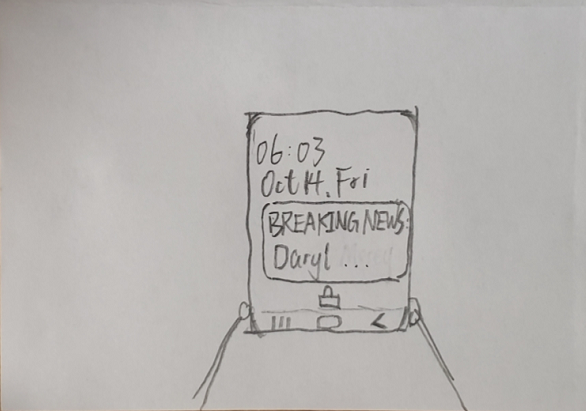 06:03
Oct 14. Fri
BREAKING NEWS:
Daryl ...